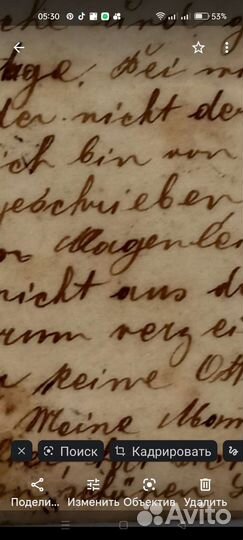 05:30
53%
age. Bei
der nicht der
ch bin von
geschrieben
Magenlei
nicht aus d
rum verzei
keine Ost
Meine Mom
Поиск
Кадрировать
Подели...
Изменить
Объектив
Удалить
Avito